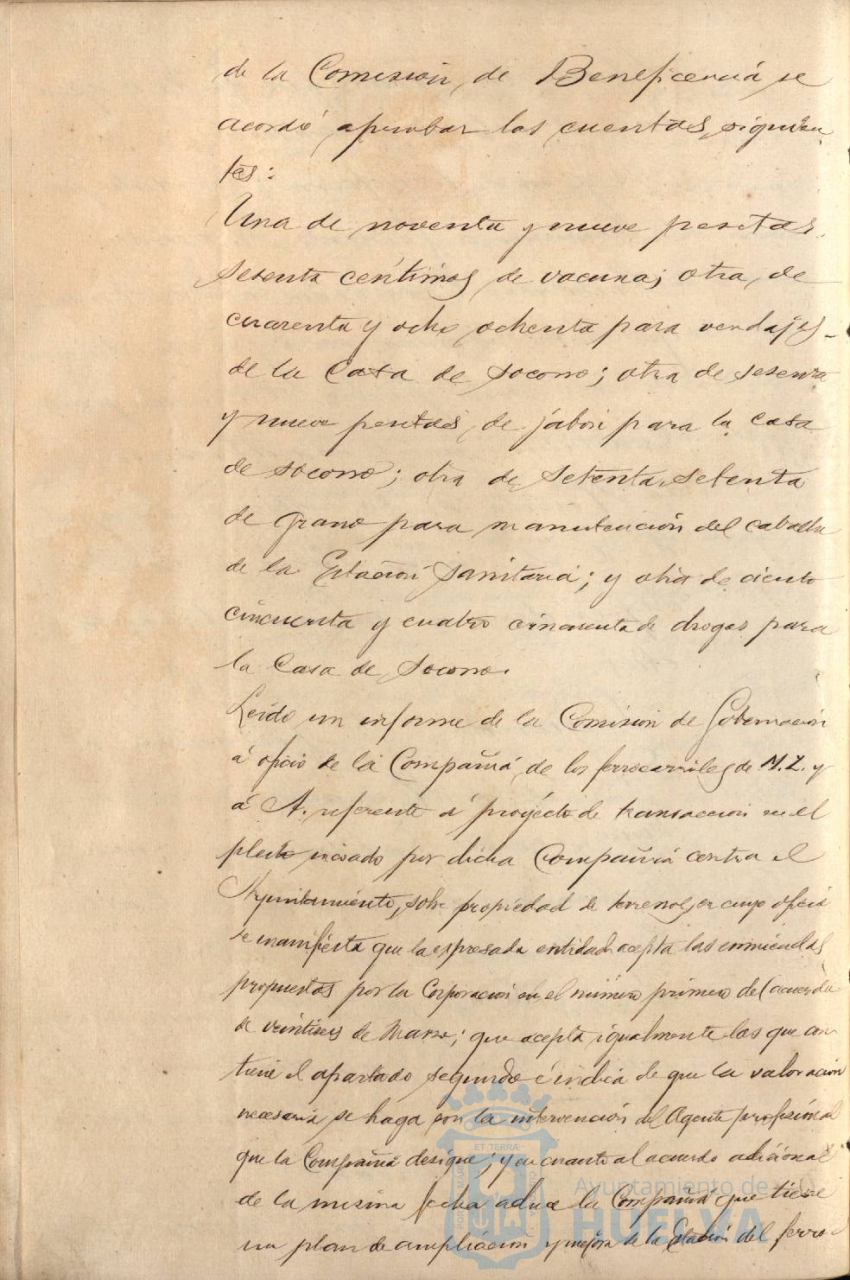 de la Comisión, de Beneficencia se
acordó aprobar las cuentas siguien-
tes:
Una de noventa y nueve pesetas,
setenta céntimos de vacuna; otra, de
cuarenta y ocho ochenta para vendajes
de la Casa de Socorro; otra de sesenta
y nueve pesetas, de jabón para la casa
de socorro; otra de setenta, setenta
de grano para manutención del caballo
de la Estación Sanitaria; y otra de ciento
cincuenta y cuatro cincuenta de drogas para
la Casa de Socorro.
Leido un informe de la Comisión de Gobernación
á oficio de la Compañía, de los ferrocarriles de M. Z. y
á A. referente á proyecto de transacción en el
pleito iniciado por dicha Compañía contra el
Ayuntamiento, sobre propiedad de terrenos, en cuyo oficio
se manifiesta que la expresada entidad acepta las enmiendas
propuestas por la Corporación en el número primero del acuerdo
de veintiseis de Marzo; que acepta igualmente las que con-
tiene el apartado segundo é indica de que la valoración
necesaria se haga con la intervención del Agente profesional
que la Compañía designe; y en cuanto al acuerdo adicional
de la misma fecha aduce la Compañía que tiene
un plan de ampliación y mejora de la Estación del ferro-
ET TERRA
Ayuntamiento de
HUELVA